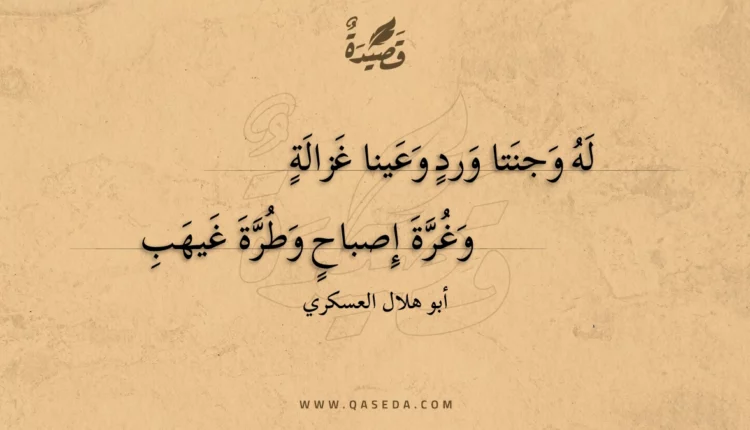 قَصِيدَةٌ
لَهُ وَجنَتا وَردٍ وَعَينا غَزالَةٍ
وَغُرَّةَ إِصباحٍ وَطُرَّةَ غَيهَبِ
أبو هلال العسكري
WWW.QASEDA.COM